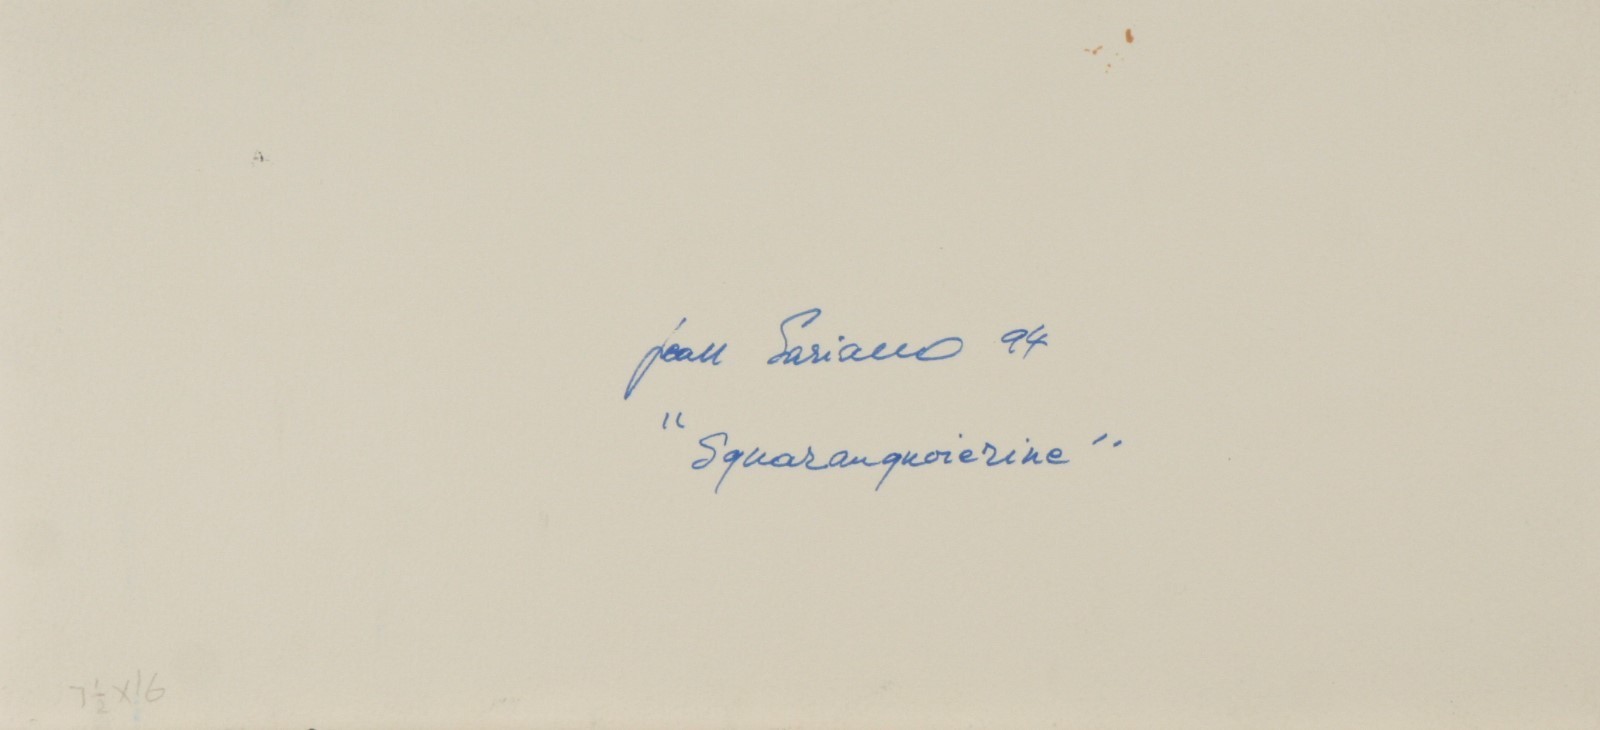 Jean Soriano 94
"Squaranquoierine"
7 ½ X 16